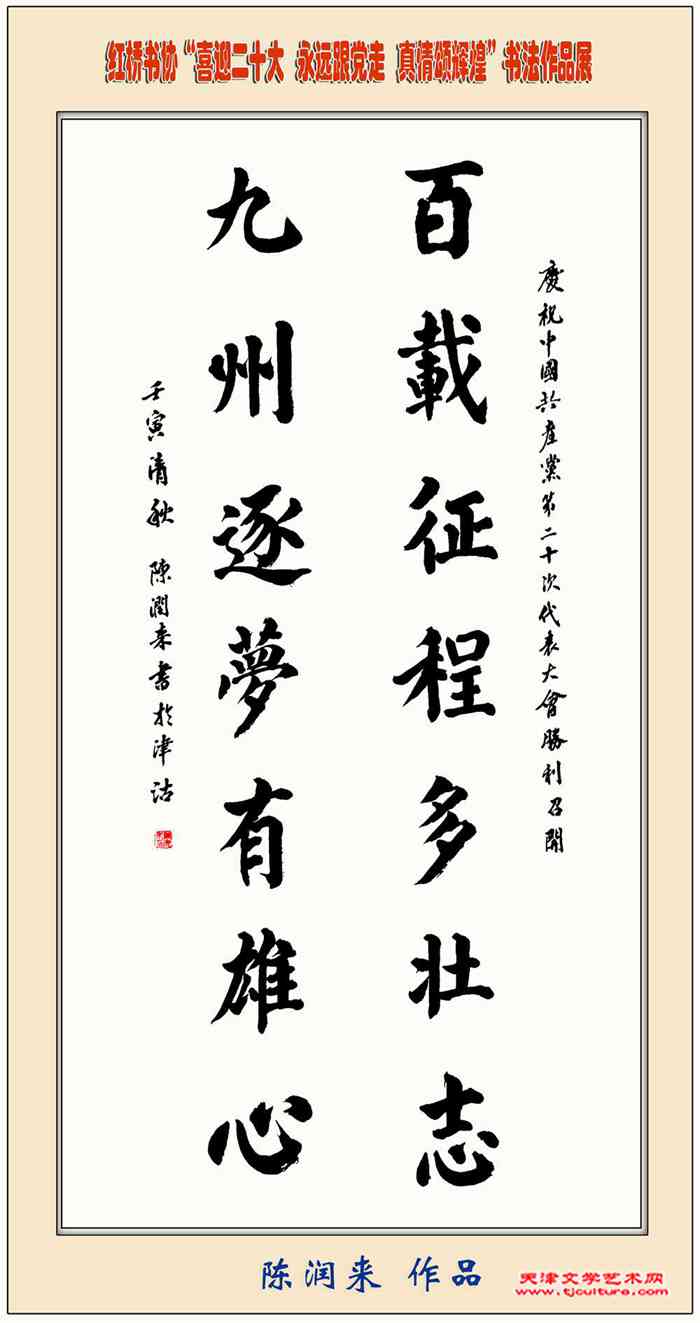 红桥书协“喜迎二十大 永远跟党走 真情颂辉煌”书法作品展
慶祝中國共產黨第二十次代表大會勝利召開
百載征程多壯志
九州逐夢有雄心
壬寅清秋 陳潤来書於津沽
陈润来 作品
天津文学艺术网
www.tjculture.com